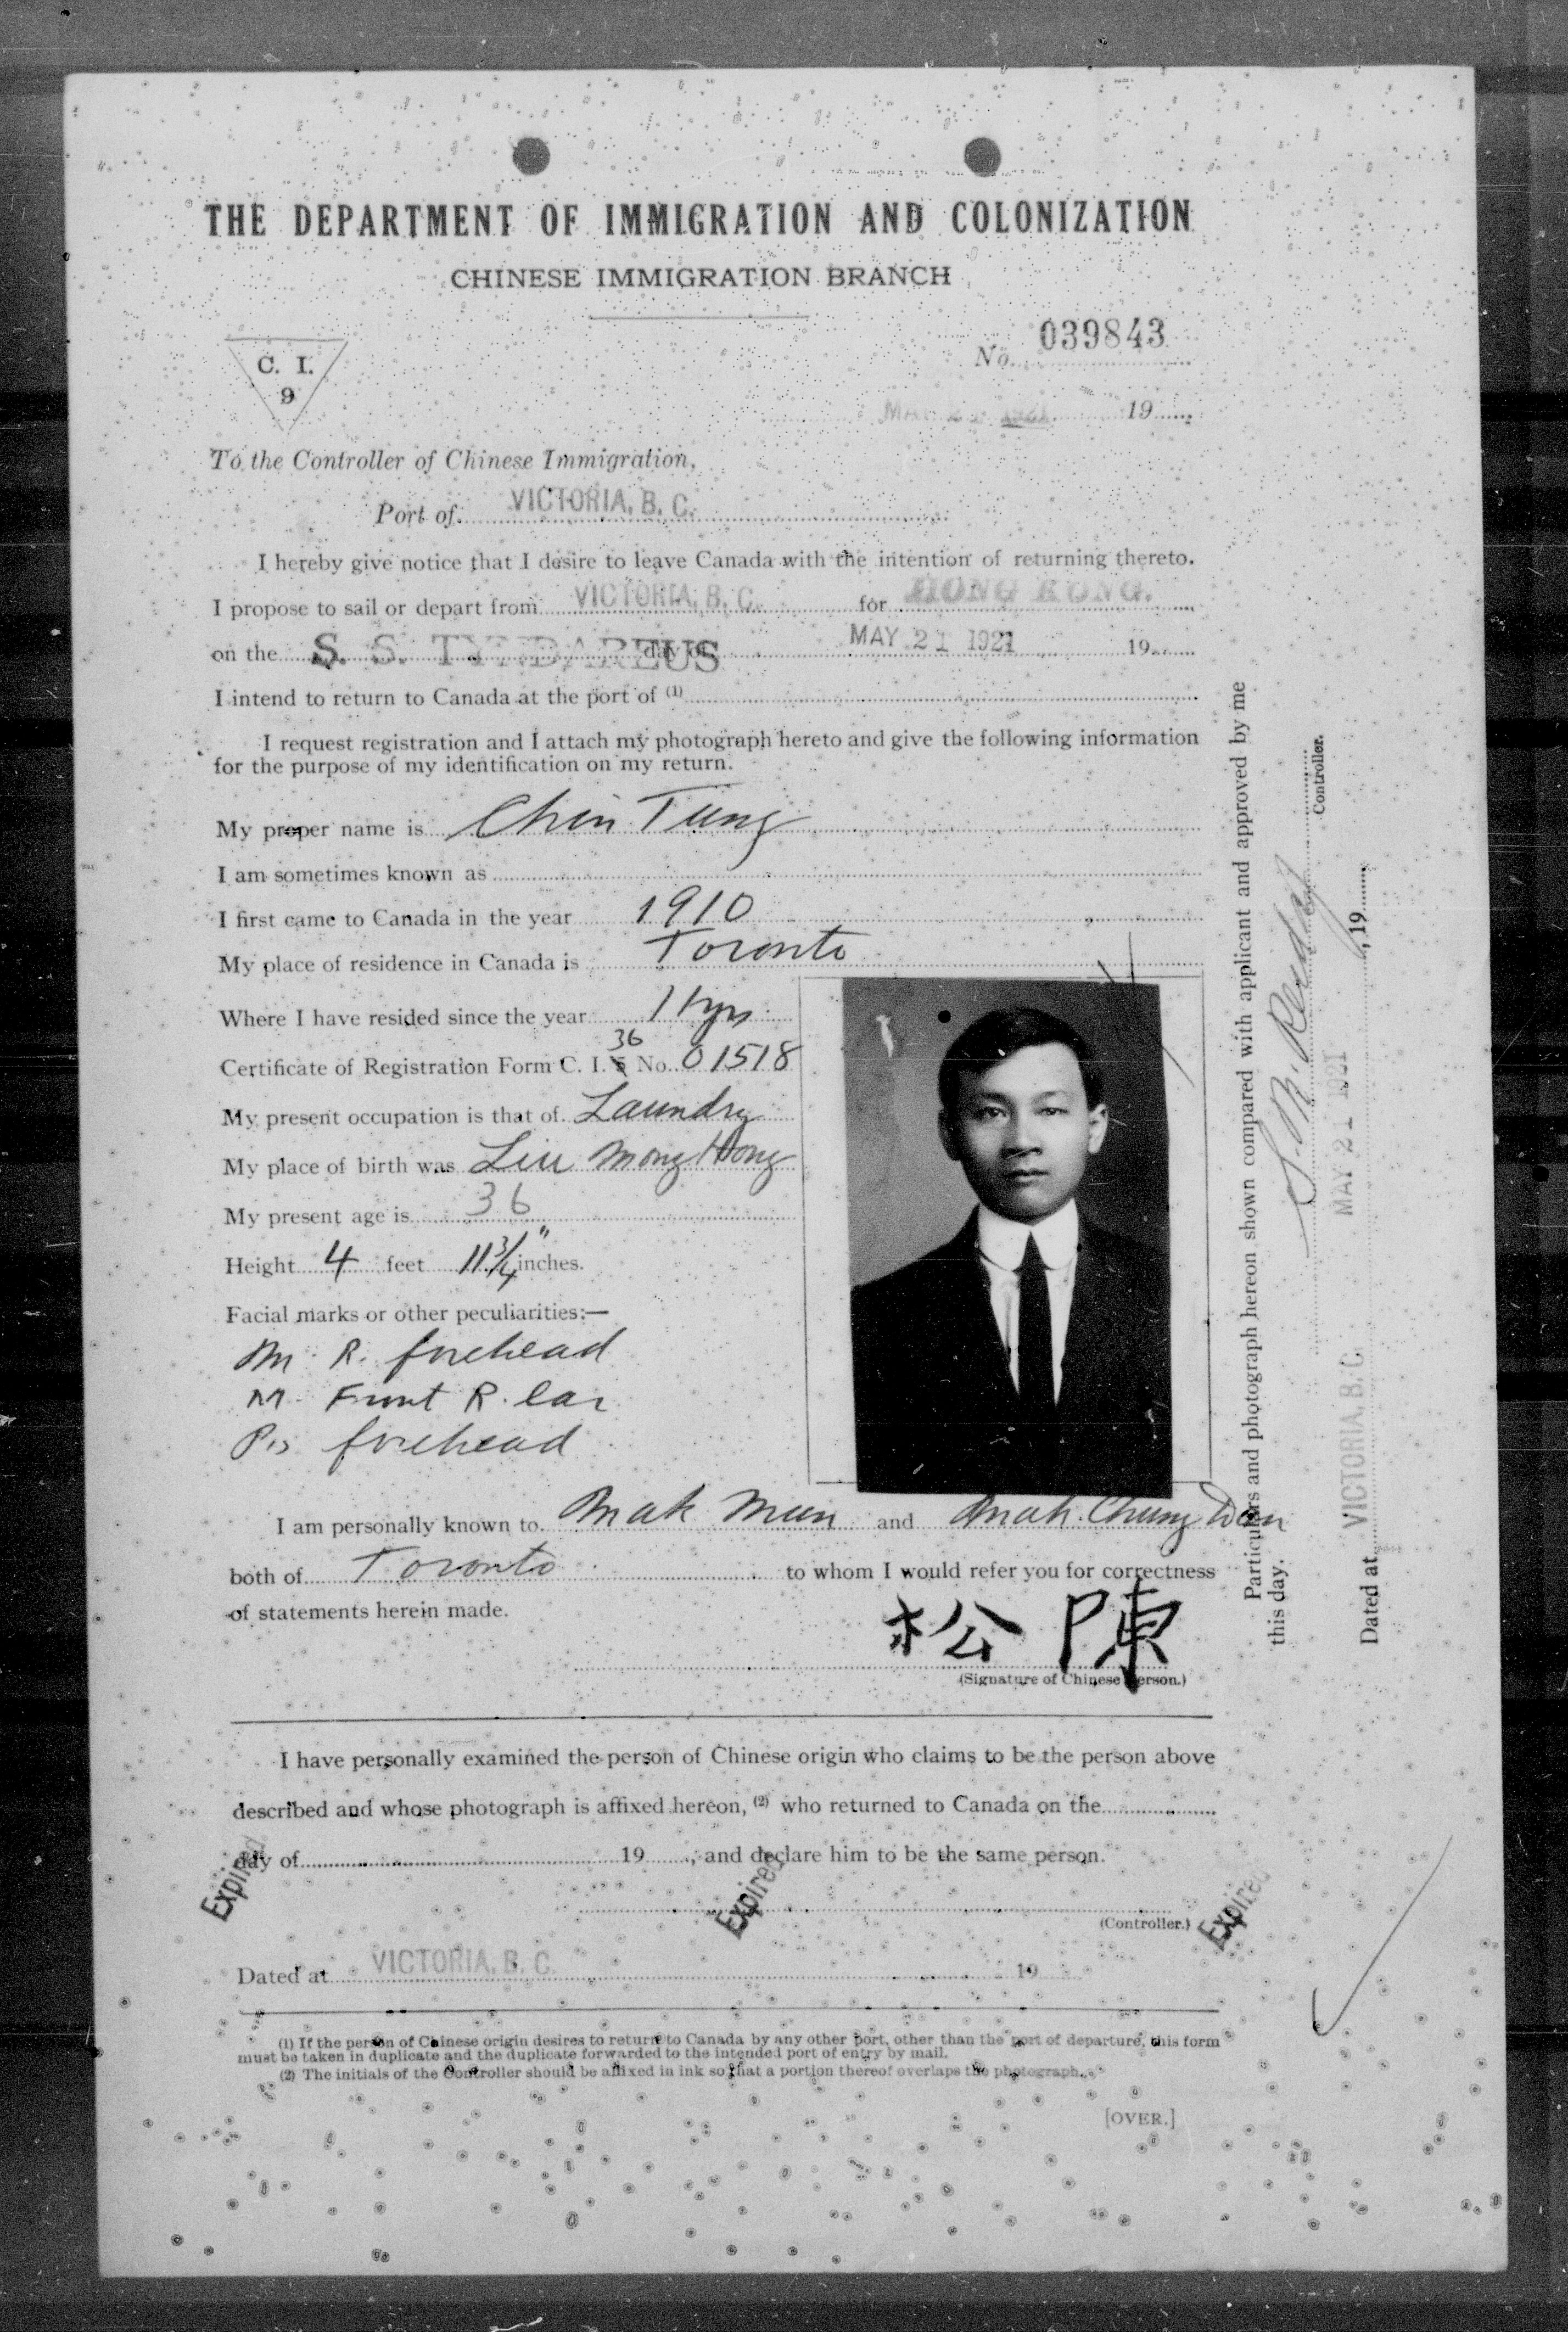 THE DEPARTMENT OF IMMIGRATION AND COLONIZATION
CHINESE IMMIGRATION BRANCH
C. I.
9
No. 039843
MAY 21 1921 19
To the Controller of Chinese Immigration,
Port of VICTORIA, B. C.
I hereby give notice that I desire to leave Canada with the intention of returning thereto.
I propose to sail or depart from VICTORIA, B. C. for HONG KONG.
on the S. S. TYNDAREUS day of MAY 21 1921 19
I intend to return to Canada at the port of (1)
I request registration and I attach my photograph hereto and give the following information
for the purpose of my identification on my return.
My proper name is Chin Tung
I am sometimes known as
I first came to Canada in the year 1910
My place of residence in Canada is Toronto
Where I have resided since the year 11 yrs
36
Certificate of Registration Form C. I. 5 No. 01518
My present occupation is that of Laundry
My place of birth was Liu Mong Hong
My present age is 36
Height 4 feet 11 3/4" inches.
Facial marks or other peculiarities:—
M. R. forehead
M. Front R. ear
forehead
I am personally known to Mak Mun and Mah Chung
both of Toronto to whom I would refer you for correctness
of statements herein made.
松 陳
(Signature of Chinese Person.)
I have personally examined the person of Chinese origin who claims to be the person above
described and whose photograph is affixed hereon, (2) who returned to Canada on the
day of 19, and declare him to be the same person.
Expired Expired Expired
(Controller.)
Dated at VICTORIA, B. C. 19
(1) If the person of Chinese origin desires to return to Canada by any other port, other than the port of departure, this form
must be taken in duplicate and the duplicate forwarded to the intended port of entry by mail.
(2) The initials of the Controller should be affixed in ink so that a portion thereof overlaps the photograph.
[OVER.]
Particulars and photograph hereon shown compared with applicant and approved by me
this day.
Controller.
Dated at VICTORIA, B. C. MAY 21 1921, 19